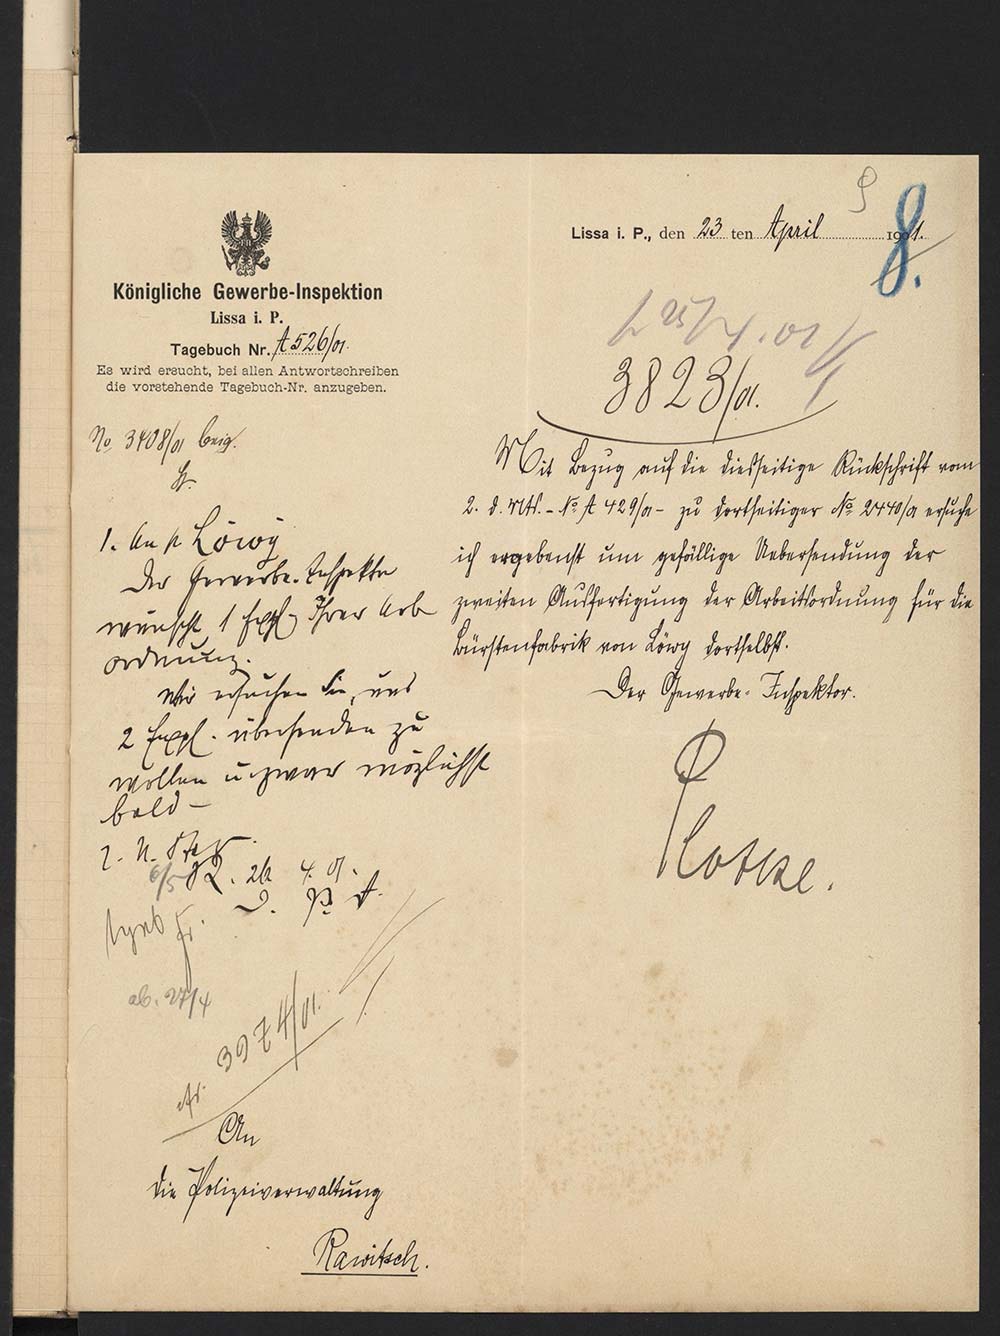 9
8.
Lissa i. P., den 23 ten April 1901.
Königliche Gewerbe-Inspektion
Lissa i. P.
Tagebuch Nr. A 526/01.
Es wird ersucht, bei allen Antwortschreiben
die vorstehende Tagebuch-Nr. anzugeben.
3823/01.
Mit Bezug auf die diesseitige Rückschrift vom
2. d. Mts. - No A 429/01 - zu dortseitiger No 2440/01 ersuche
ich ergebenst um gefällige Uebersendung der
zweiten Ausfertigung der Arbeitsordnung für die
Bürstenfabrik von Löwy dortselbst.
Der Gewerbe-Inspektor.
No 3408/01 beig.
1. An Löwy
Der Gewerbe-Inspektor
wünscht 1 Expl. Ihrer Arb
ordnung.
Wir ersuchen Sie, uns
2 Expl. übersenden zu
wollen u. zwar möglichst
bald -
2. N.
6/5 R. 26 4. 01.
D. P. V.
ab. 27/4
3974/01.
An
die Polizeiverwaltung
Rawitsch.